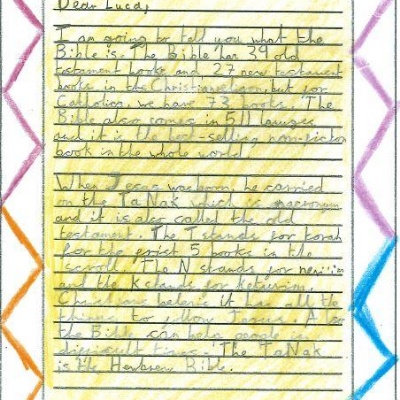 Dear Luca,
I am going to tell you what the
Bible is. The Bible has 39 old
testament books and 27 new testament
books in the Christian religion but for
Catholics, we have 73 books. The
Bible also comes in 511
and it is the best-selling non-fiction
book in the whole world.
When Jesus was born, he carried
on the TaNak which is
and it is also called the old
testament. The T stands for torah
for the first 5 books in the
scroll. The N stands for
and the K stands for
Christians it has all the
things to Jesus. Also
the Bible can help people in
times. The TaNak
is the Bible.